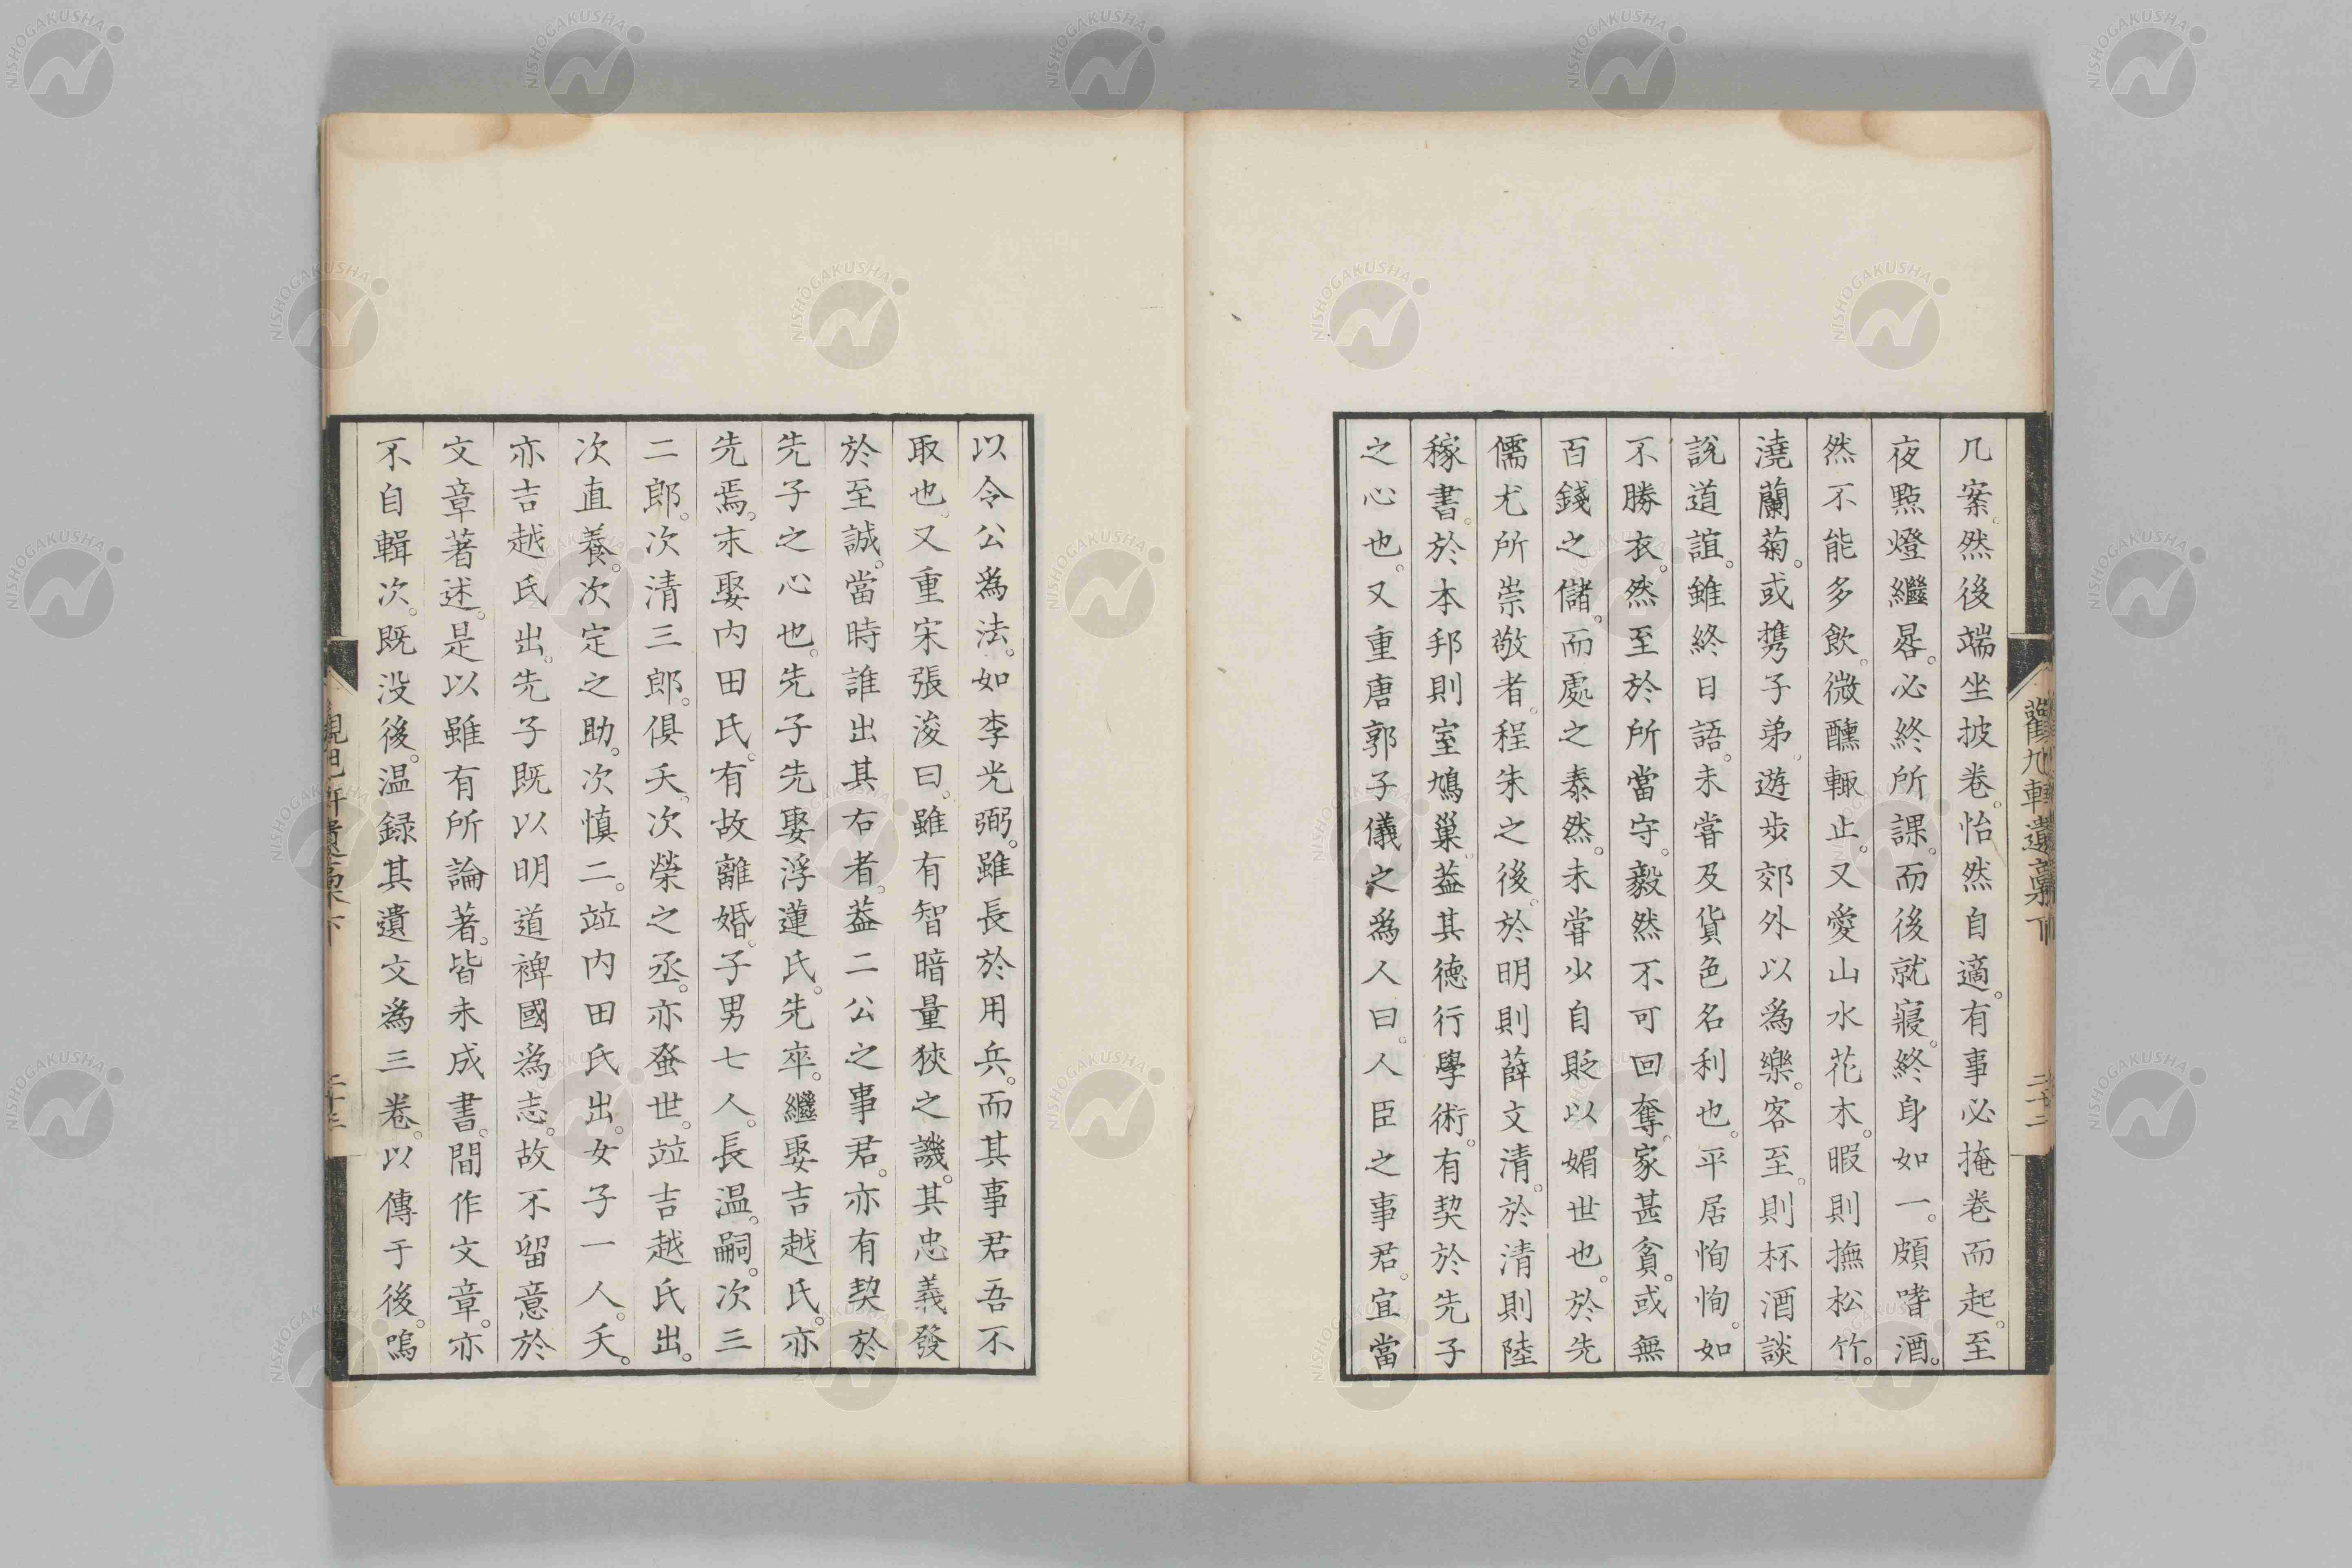 几案。然後端坐披卷。怡然自適。有事必掩卷而起。至
夜點燈繼晷。必終所課。而後就寢。終身如一。頗嗜酒。
然不能多飲。微醺輒止。又愛山水花木。暇則撫松竹。
澆蘭菊。或携子弟。遊步郊外以為樂。客至。則杯酒談
說道誼。雖終日語。未嘗及貨色名利也。平居恂恂。如
不勝衣。然至於所當守。毅然不可回奪。家甚貧。或無
百錢之儲。而處之泰然。未嘗少自貶以媚世也。於先
儒尤所崇敬者。程朱之後。於明則薛文清。於清則陸
稼書。於本邦則室鳩巢。葢其德行學術。有契於先子
之心也。又重唐郭子儀之為人曰。人臣之事君。宜當
以令公為法。如李光弼。雖長於用兵。而其事君吾不
取也。又重宋張浚曰。雖有智暗量狹之譏。其忠義發
於至誠。當時誰出其右者。葢二公之事君。亦有契於
先子之心也。先子先娶浮蓮氏。先卒。繼娶吉越氏。亦
先焉。末娶内田氏。有故離婚。子男七人。長温。嗣。次三
二郎。次清三郎。俱夭。次榮之丞。亦蚤世。竝吉越氏出。
次直養。次定之助。次慎二。竝内田氏出。女子一人。夭。
亦吉越氏出。先子既以明道裨國為志。故不留意於
文章著述。是以雖有所論著。皆未成書。間作文章。亦
不自輯次。既没後。温録其遺文為三卷。以傳于後。嗚
NISHOGAKUSHA